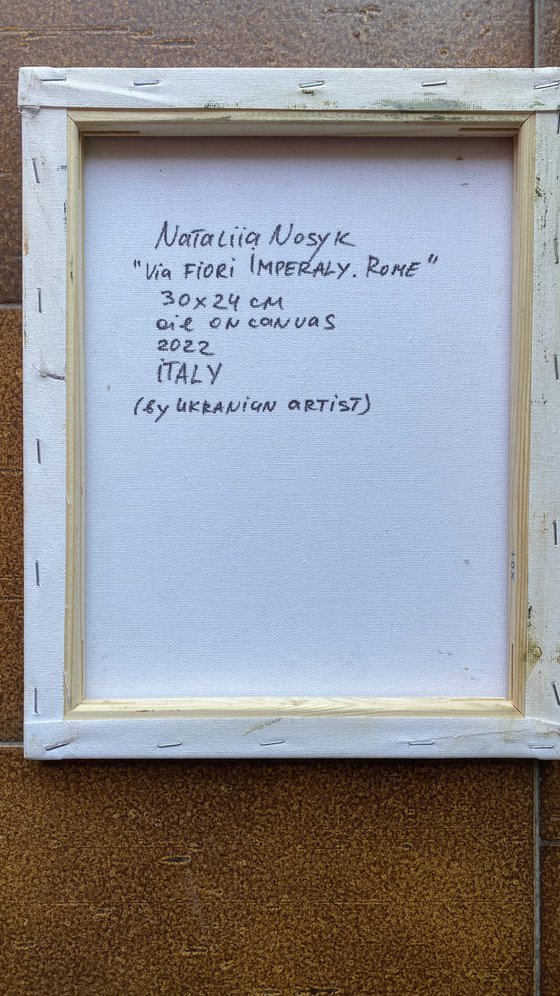 Nataliia Nosyk
"Via FIORI IMPERALY. ROME"
30x24 cm
oil on canvas
2022
ITALY
(by UKRANIAN ARTIST)